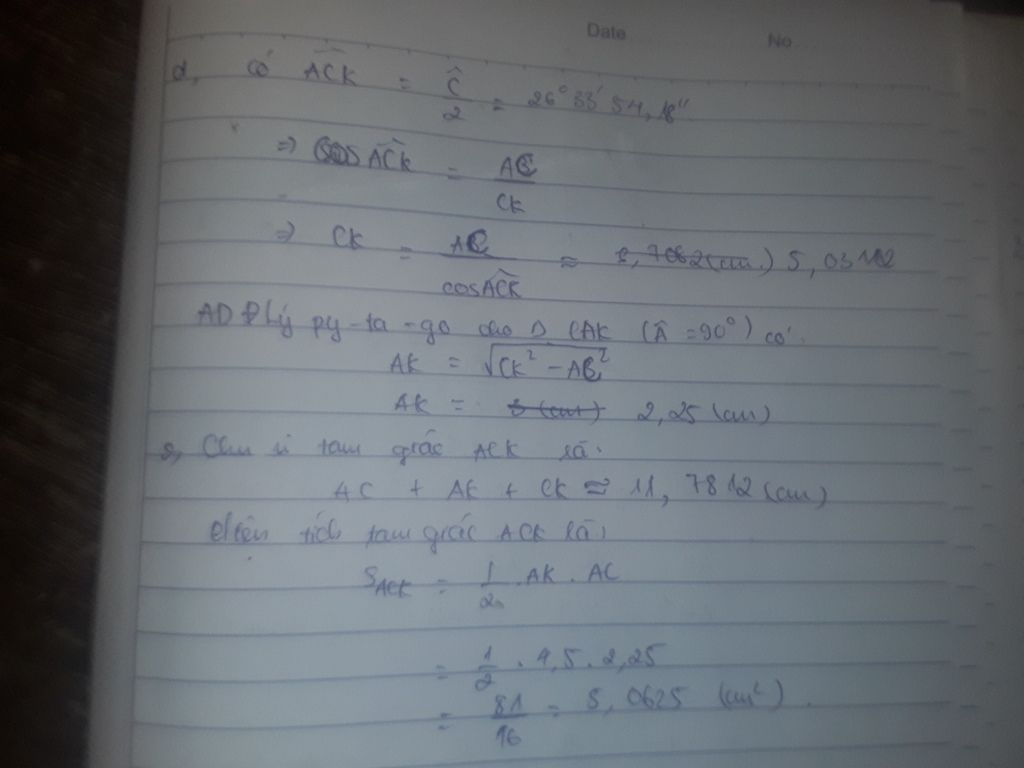 Date No
d, có ACK̂ = Ĉ/2 = 26° 33' 54,18"
=> cos ACK̂ = AC/CK
=> CK = AC/cosACK̂ ≈ 5,03112
AD Đlý py-ta-go cho Δ CAK (Â = 90°) có:
AK = √(CK² - AC²)
AK = 2,25 (cm)
e, Chu vi tam giác ACK là:
AC + AK + CK ≈ 11,7812 (cm)
diện tích tam giác ACK là:
S_ACK = 1/2 . AK . AC
= 1/2 . 4,5 . 2,25
= 81/16 = 5,0625 (cm²).